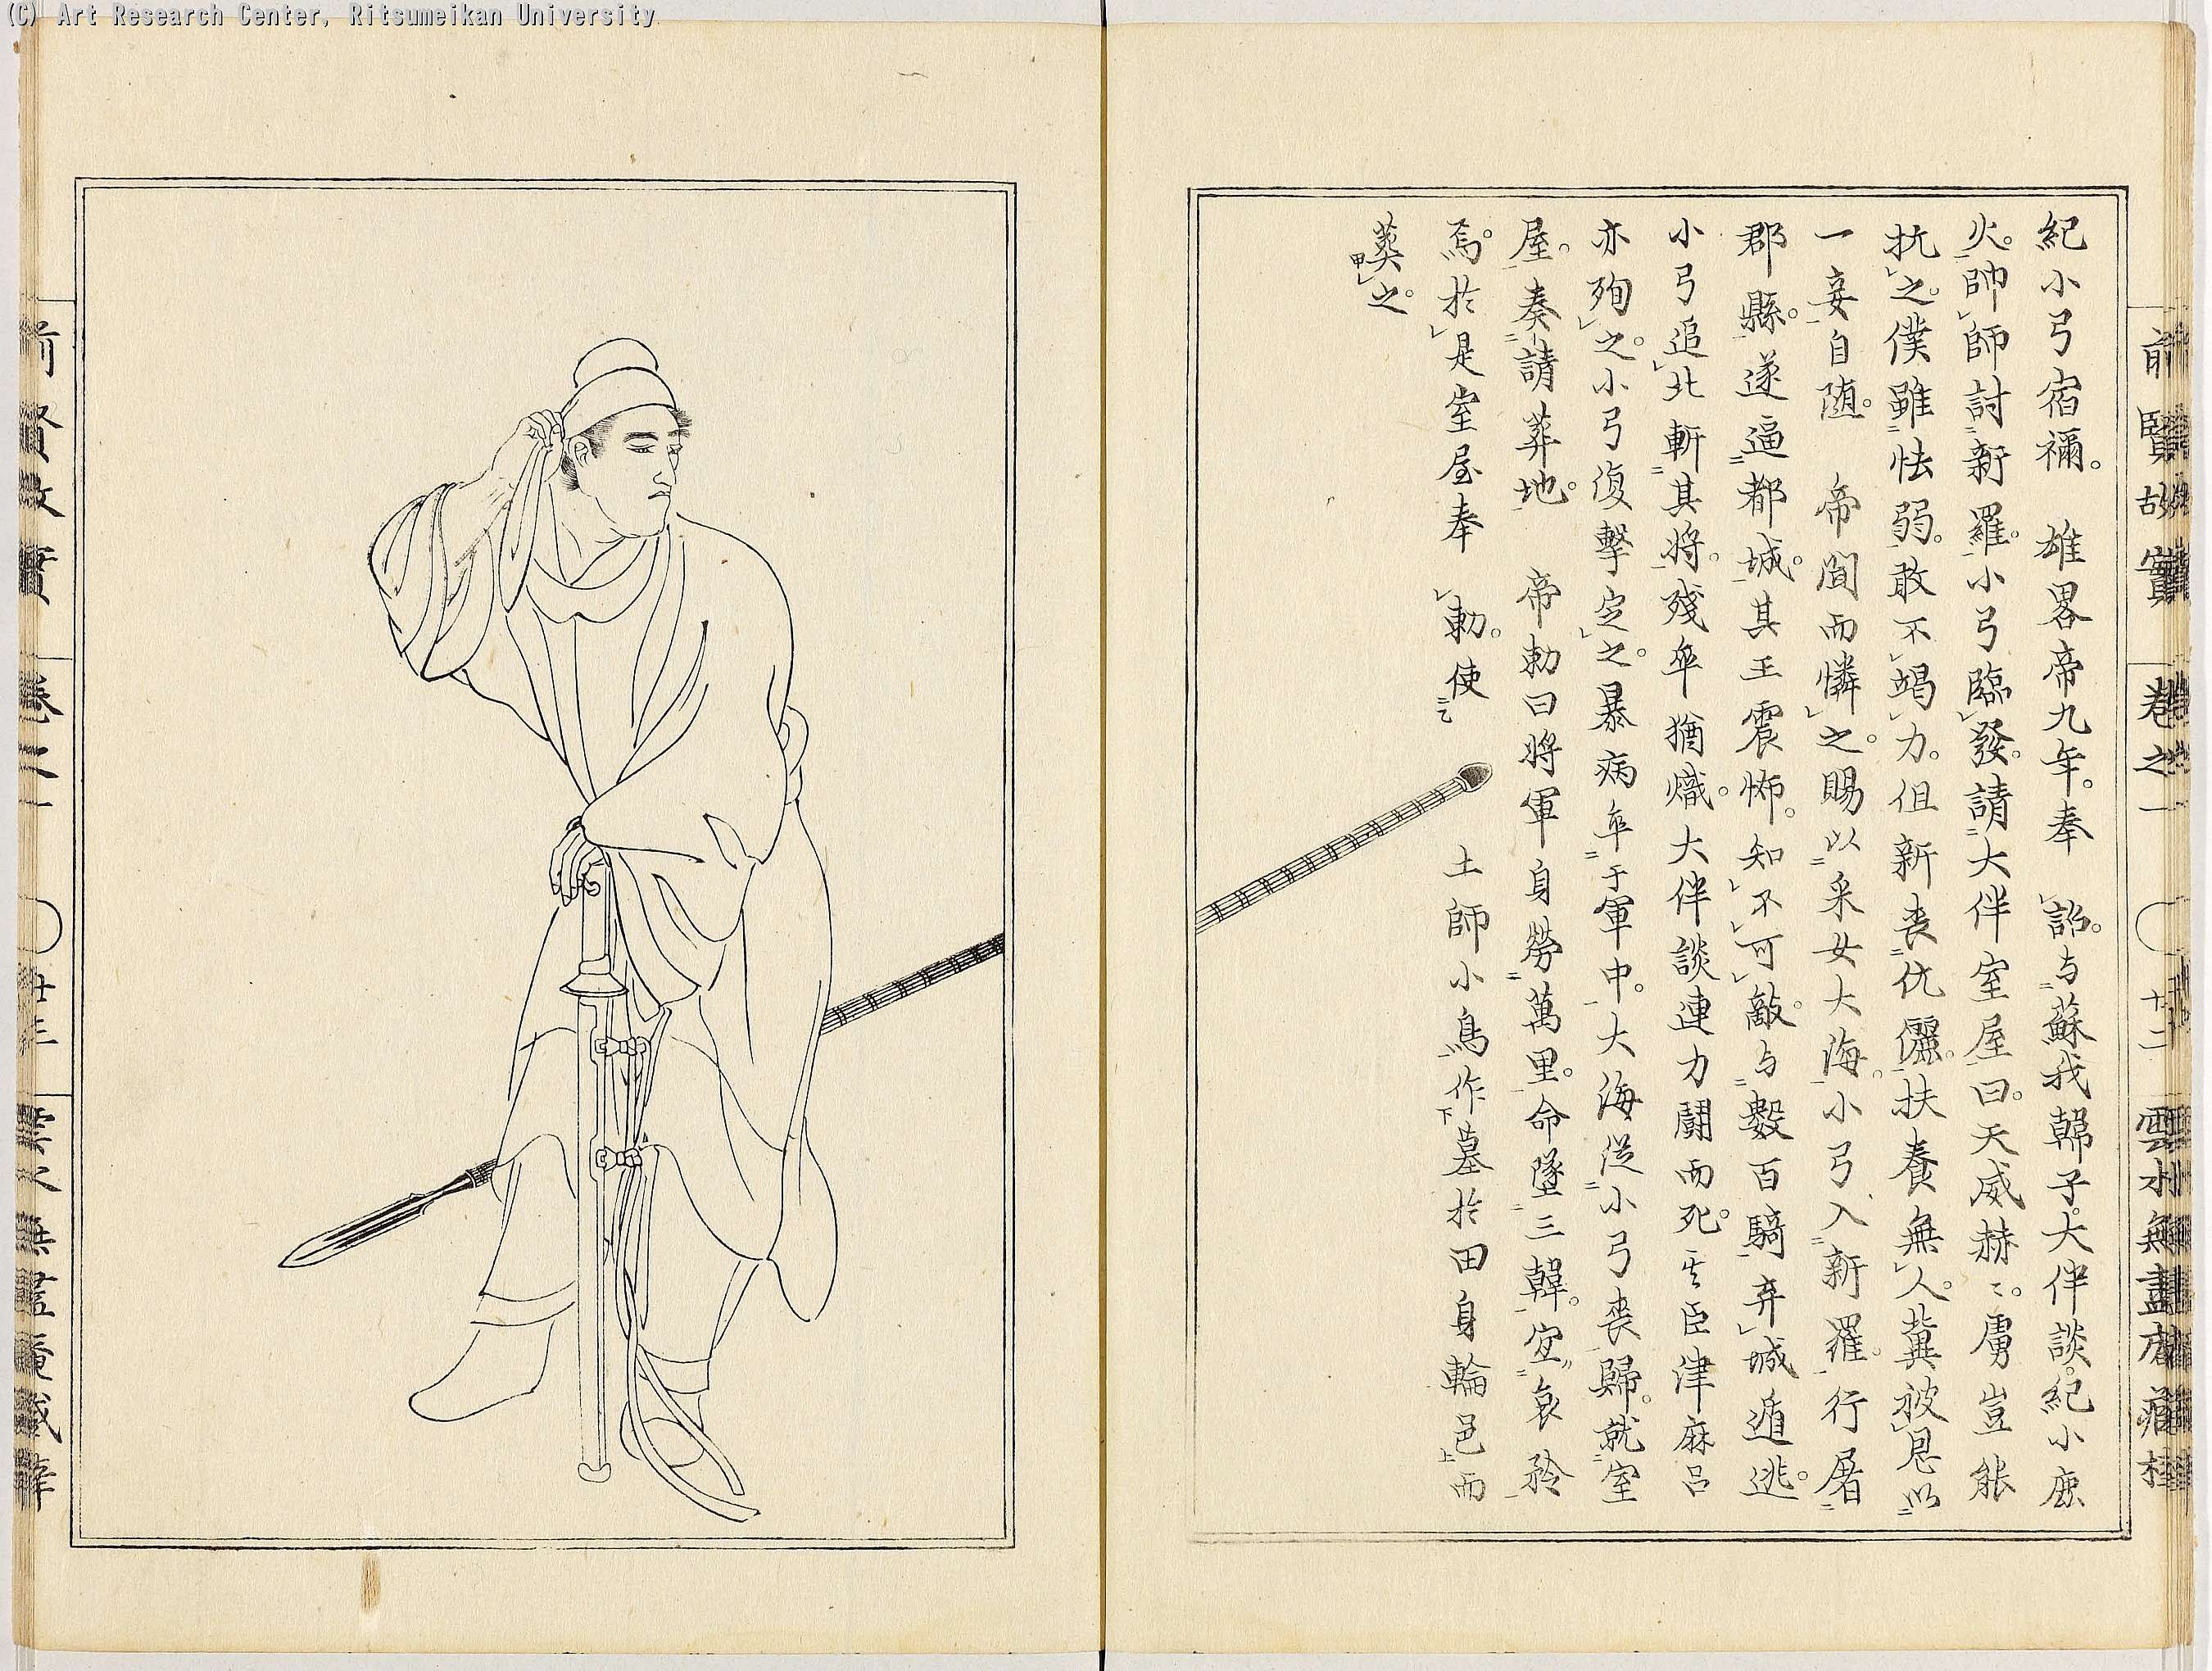 (C) Art Research Center, Ritsumeikan University
前賢故實 卷之一 十二
紀小弓宿禰。 雄畧帝九年。奉 詔。与蘇我韓子。大伴談。紀小鹿
火。帥師討新羅。小弓臨發。請大伴室屋曰。天威赫〻。虜豈能
抗之。僕雖怯弱。敢不竭力。但新喪伉儷。扶養無人。冀被恩以
一妾自随。 帝聞而憐之。賜以采女大海。小弓入新羅。行屠
郡縣。遂逼都城。其王震怖。知不可敵。与數百騎弃城遁逃。
小弓追北斬其将。殘卒猶熾。大伴談連力鬪而死。其臣津麻呂
亦殉之。小弓復擊定之。暴病卒于軍中。大海従小弓喪歸。就室
屋。奏請葬地。 帝勅曰将軍身勞萬里。命墜三韓。宜哀矜
焉。於是室屋奉 勅。使 土師小鳥作墓於田身輪邑而
葬之。
前賢故實